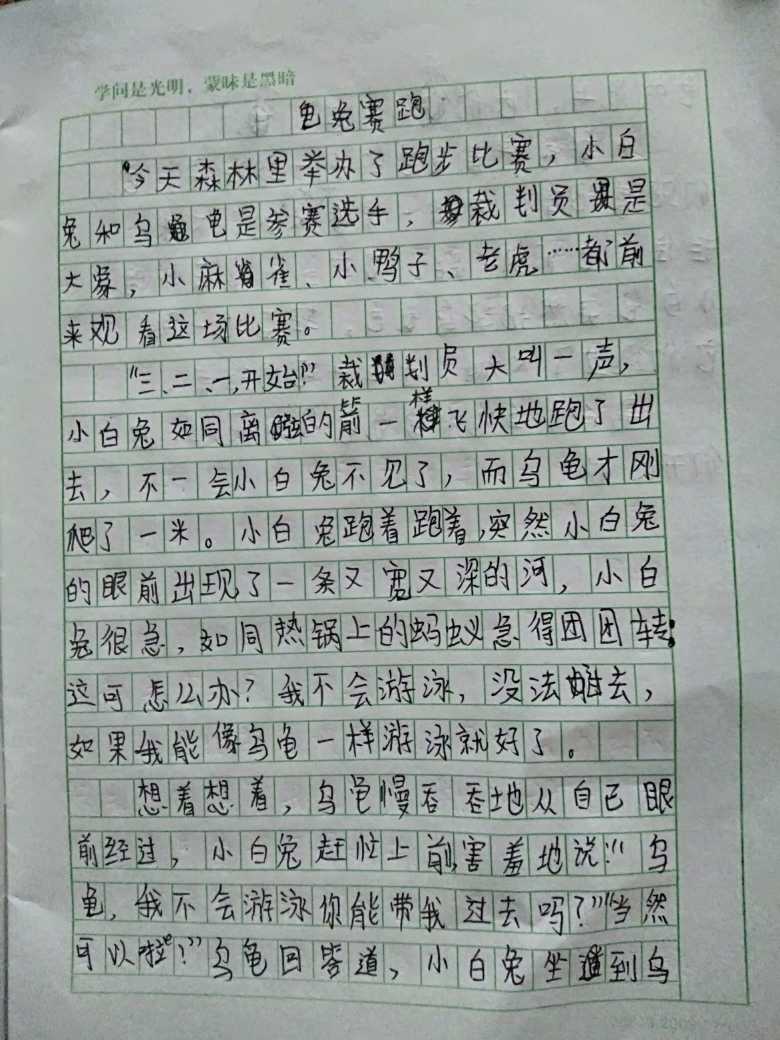 学问是光明，蒙昧是黑暗
龟兔赛跑
"今天森林里举办了跑步比赛，小白
兔和乌龟是参赛选手，裁判员是
大象，小麻雀、小鸭子、老虎……都前
来观看这场比赛。
"三、二、一，开始！"裁判员大叫一声，
小白兔如同离的箭一样飞快地跑了出
去，不一会小白兔不见了，而乌龟才刚
爬了一米。小白兔跑着跑着，突然小白兔
的眼前出现了一条又宽又深的河，小白
兔很急，如同热锅上的蚂蚁急得团团转：
这可怎么办？我不会游泳，没法去，
如果我能像乌龟一样游泳就好了。
想着想着，乌龟慢吞吞地从自己眼
前经过，小白兔赶忙上前，害羞地说："乌
龟，我不会游泳你能带我过去吗？""当然
可以啦！"乌龟回答道，小白兔坐到乌